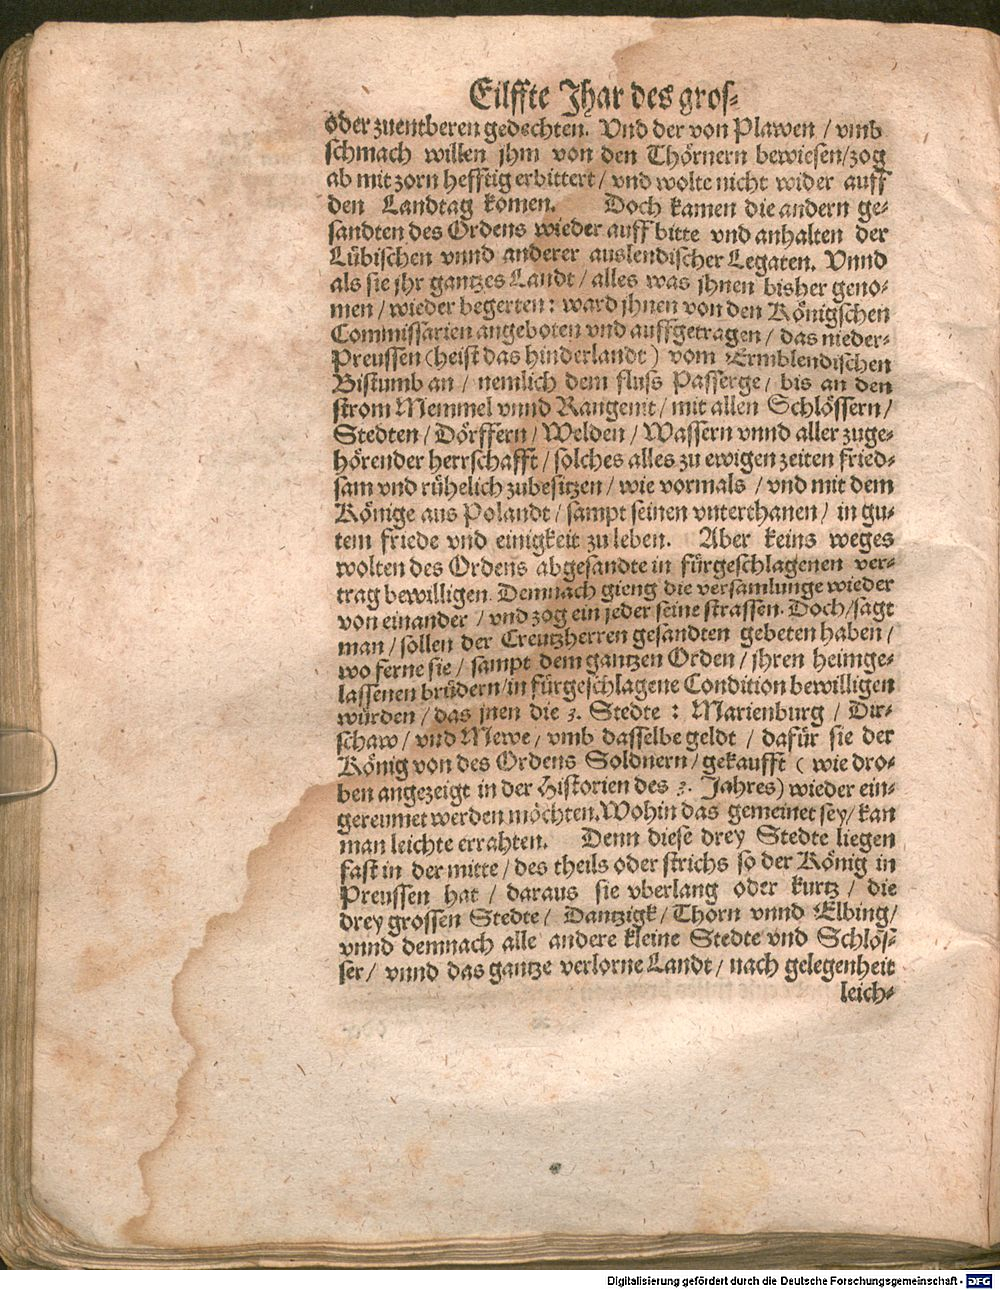 Eilffte Jhar des gros⸗
oder zuentberen gedechten. Vnd der von Plawen / vmb
schmach willen jhm von den Thörnern bewiesen/zog
ab mit zorn hefftig erbittert / vnd wolte nicht wider auff
den Landtag komen. Doch kamen die andern ge⸗
sandten des Ordens wieder auff bitte vnd anhalten der
Lübischen vnnd anderer auslendischer Legaten. Vnnd
als sie jhr gantzes Landt / alles was jhnen bisher geno⸗
men / wieder begerten: ward jhnen von den Königschen
Commissarien angeboten vnd auffgetragen / das nieder⸗
Preussen (heist das hinderlandt) vom Ermblendischen
Bistumb an / nemlich dem fluss Passerge / bis an den
strom Memmel vnnd Rangenit / mit allen Schlössern /
Stedten / Dörffern / Welden / Wassern vnnd aller zuge⸗
hörender herrschafft / solches alles zu ewigen zeiten fried⸗
sam vnd rühelich zubesitzen / wie vormals / vnd mit dem
Könige aus Polandt / sampt seinen vnterthanen / in gu⸗
tem friede vnd einigkeit zu leben. Aber keins weges
wolten des Ordens abgesandte in fürgeschlagenen ver⸗
trag bewilligen. Demnach gieng die versamlunge wieder
von einander / vnd zog ein jeder seine strassen. Doch/sagt
man / sollen der Creutzherren gesandten gebeten haben /
wo ferne sie / sampt dem gantzen Orden / jhren heimge⸗
lassenen brüdern/in fürgeschlagene Condition bewilligen
würden / das jnen die 3. Stedte : Marienburg / Dir⸗
schaw / vnd Mewe / vmb dasselbe geldt / dafür sie der
König von des Ordens Soldnern / gekaufft ( wie dro⸗
ben angezeigt in der Historien des 3. Jahres) wieder ein⸗
gereumet werden möchten. Wohin das gemeinet sey/ kan
man leichte errahten. Denn diese drey Stedte liegen
fast in der mitte / des theils oder strichs so der König in
Preussen hat / daraus sie vberlang oder kurtz / die
drey grossen Stedte / Dantzigk / Thorn vnnd Elbing/
vnnd demnach alle andere kleine Stedte vnd Schlös⸗
ser / vnnd das gantze verlorne Landt / nach gelegenheit
leich⸗
Digitalisierung gefördert durch die Deutsche Forschungsgemeinschaft - DFG